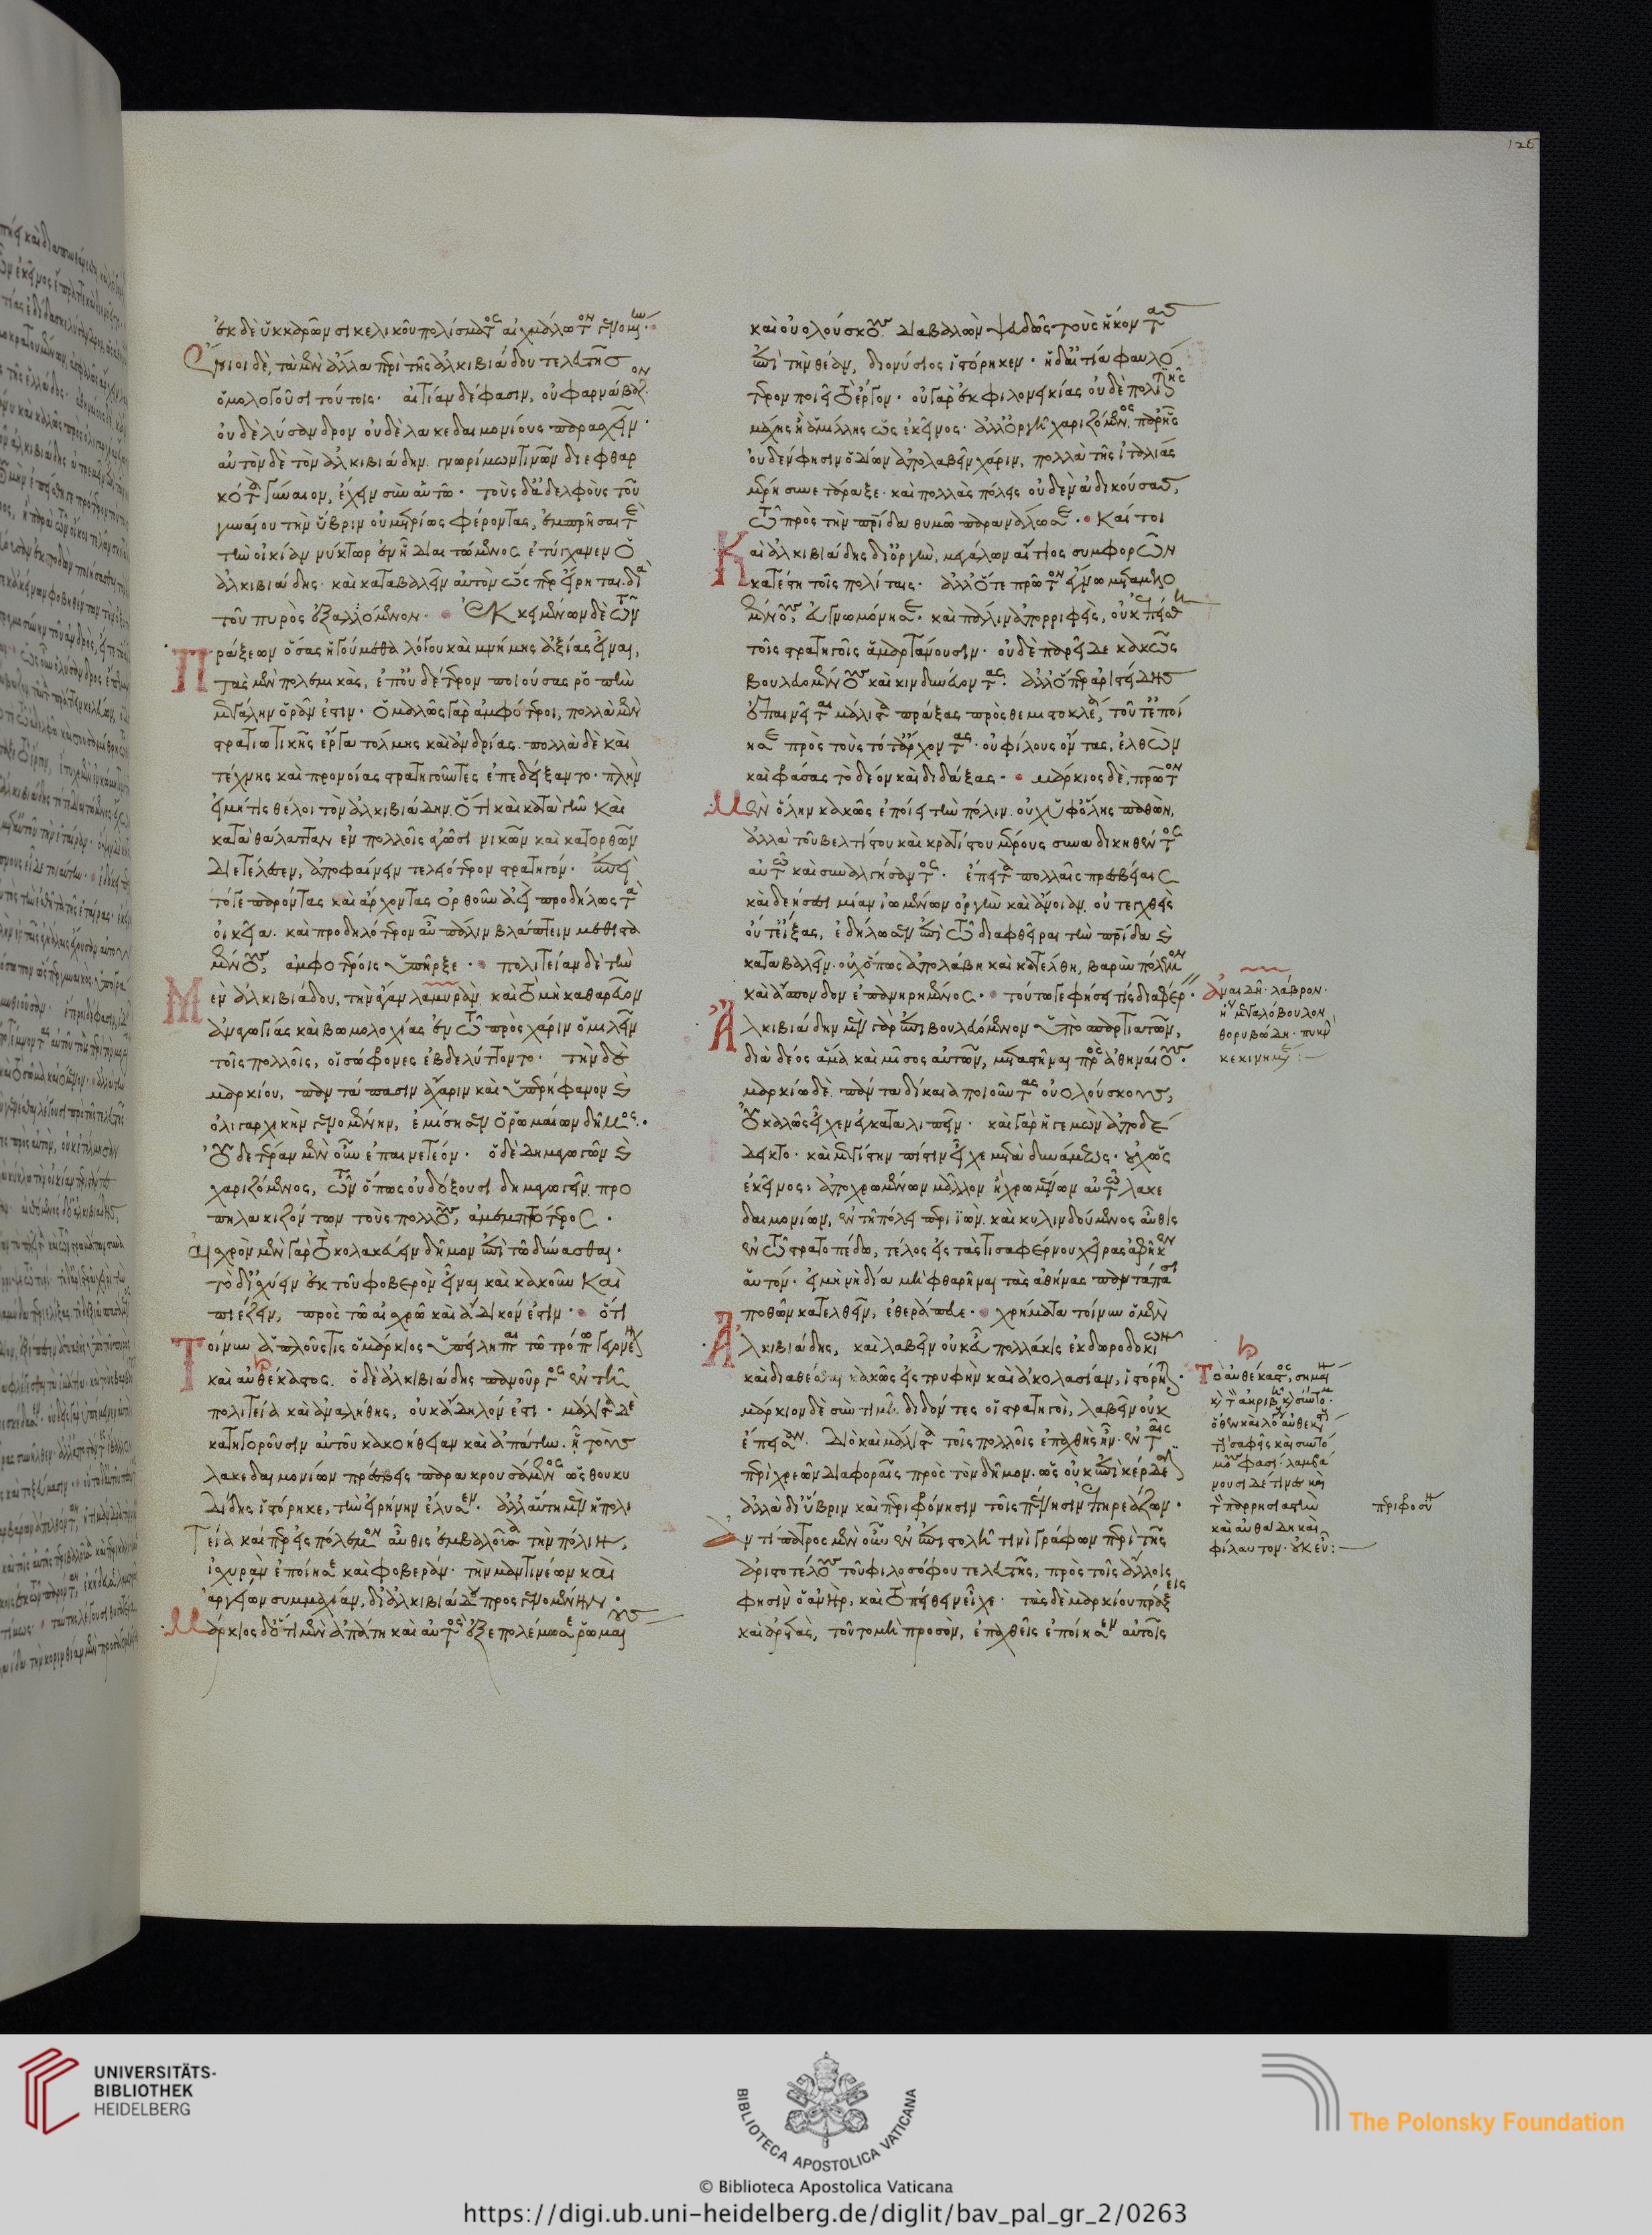 ἐκ δὲ ὑκκάρων σικελικοῦ πολίσματος αἰχμάλωτον γενομένην.
Ἔνιοι δὲ, τὰ μὲν ἄλλα περὶ τῆς ἀλκιβιάδου τελευτῆς
ὁμολογοῦσι τούτοις. αἰτίαν δέ φασιν, οὐ φαρνάβαζον
οὐδὲ λύσανδρον οὐδὲ λακεδαιμονίους παρασχεῖν.
αὐτὸν δὲ τὸν ἀλκιβιάδην. γνωρίμων τινῶν διεφθαρ
κότα γύναιον, ἔχειν σὺν αὐτῷ. τοὺς δ' ἀδελφοὺς τοῦ
γυναίου τὴν ὕβριν οὐ μετρίως φέροντας, ἐμπρῆσαί τε
τὴν οἰκίαν νύκτωρ ἐν ᾗ διαιτώμενος ἐτύγχανεν ὁ
ἀλκιβιάδης. καὶ καταβαλεῖν αὐτὸν ὥσπερ εἴρηται διὰ
τοῦ πυρὸς ἐξαλλόμενον. Ἐκκειμένων δὲ τῶν
Πράξεων ὅσας ἡγούμεθα λόγου καὶ μνήμης ἀξίας εἶναι,
τὰς μὲν πολεμικὰς, ἐπ' οὐδέτερον ποιούσας ῥοπὴν
μεγάλην ὁρᾶν ἔστιν. ὁμαλῶς γὰρ ἀμφότεροι, πολλὰ μὲν
στρατιωτικῆς ἔργα τόλμης καὶ ἀνδρίας. πολλὰ δὲ καὶ
τέχνης καὶ προνοίας στρατηγοῦντες ἐπεδείξαντο. πλὴν
εἰ μή τις θέλοι τὸν ἀλκιβιάδην. ὅτι καὶ κατὰ γῆν καὶ
κατὰ θάλατταν ἐν πολλοῖς ἀγῶσι νικῶν καὶ κατορθῶν
διετέλεσεν, ἀποφαίνειν τελειότερον στρατηγόν. ἐπεὶ
τό γε παρόντας καὶ ἄρχοντας ὀρθοῦν ἀεὶ προδήλως τὰ
οἰκεῖα. καὶ προδηλότερον αὖ πάλιν βλάπτειν μεθιστα
μένους, ἀμφοτέροις ὑπῆρξε. πολιτείαν δὲ τὴν
Μὲν ἀλκιβιάδου, τὴν ἄγαν λαμυρὰν. καὶ τὸ μὴ καθαρεῦον
ἀναγωγίας καὶ βωμολοχίας ἐν τῷ πρὸς χάριν ὁμιλεῖν
τοῖς πολλοῖς, οἱ σώφρονες ἐβδελύττοντο. τὴν δὲ
μαρκίου, παντάπασιν ἄχαριν καὶ ὑπερήφανον καὶ
ὀλιγαρχικὴν γενομένην, ἐμίσησεν ὁ ῥωμαίων δῆμος.
Οὐδετέραν μὲν οὖν ἐπαινετέον. ὁ δὲ δημαγωγῶν καὶ
χαριζόμενος, τῶν ὅπως οὐ δόξουσι δημαγωγεῖν. προ
πηλακιζόντων τοὺς πολλοὺς, ἀμεμπτότερος.
αἰσχρὸν μὲν γὰρ τὸ κολακεύειν δῆμον ἐπὶ τῷ δύνασθαι.
τὸ δ' ἰσχύειν ἐκ τοῦ φοβερὸν εἶναι καὶ κακοῦν καὶ
πιέζειν, πρὸς τῷ αἰσχρῷ καὶ ἄδικόν ἐστιν. ὅτι
Τοίνυν ἁπλοῦς τις ὁ μάρκιος ὑπείληπται τῷ τρόπῳ γεγονέναι
καὶ αὐθέκαστος. ὁ δὲ ἀλκιβιάδης πανοῦργος ἐν τῇ
πολιτείᾳ καὶ ἀναλήθης, οὐκ ἄδηλόν ἐστι. μάλιστα δὲ
κατηγοροῦσιν αὐτοῦ κακοήθειαν καὶ ἀπάτην. ᾗ τοὺς
λακεδαιμονίων πρέσβεις παρακρουσάμενος ὡς θουκυ
δίδης ἱστόρηκε, τὴν εἰρήνην ἔλυσεν. ἀλλ' αὕτη μὲν ἡ πολι
τεία καίπερ εἰς πόλεμον αὖθις ἐμβαλοῦσα τὴν πόλιν,
ἰσχυρὰν ἐποίησε καὶ φοβεράν. τὴν μαντινέων καὶ
ἀργείων συμμαχίαν, δι' ἀλκιβιάδου προσγενομένην.
Μάρκιος δ' ὅτι μὲν ἀπάτῃ καὶ αὐτὸς ἐξεπολέμωσε ῥωμαίους
καὶ οὐολούσκους διαβαλὼν ψευδῶς τοὺς ἥκοντας
ἐπὶ τὴν θέαν, διονύσιος ἱστόρηκεν. ἡ δ' αἰτία φαυλό
τερον ποιεῖ τὸ ἔργον. οὐ γὰρ ἐκ φιλονεικίας οὐδὲ πολιτικῆς
μάχης ἢ ἁμίλλης ὡς ἐκεῖνος. ἀλλ' ὀργῇ χαριζόμενος, παρ' ἧς
οὐδέν φησιν ὁ δίων ἀπολαβεῖν χάριν, πολλὰ τῆς ἰταλίας
μέρη συνετάραξε. καὶ πολλὰς πόλεις οὐδὲν ἀδικούσας,
τῷ πρὸς τὴν πατρίδα θυμῷ παρανάλωσε. Καίτοι
Καὶ ἀλκιβιάδης δι' ὀργὴν, μεγάλων αἴτιος συμφορῶν
κατέστη τοῖς πολίταις. ἀλλ' ὅτε πρῶτον ἔγνω μεταμελο
μένους, εὐγνωμόνησε. καὶ πάλιν ἀπορριφεὶς, οὐκ
τοῖς στρατηγοῖς ἁμαρτάνουσιν. οὐδὲ παρεῖδε κακῶς
βουλευομένους καὶ κινδυνεύοντας. ἀλλ' ὅπερ ἀριστείδης
ἐπαινεῖται μάλιστα πράξας πρὸς θεμιστοκλέα, τοῦτ' ἐποί
ησε πρὸς τοὺς τότ' ἄρχοντας. οὐ φίλους ὄντας, ἐλθὼν
καὶ φράσας τὸ δέον καὶ διδάξας. μάρκιος δὲ, πρῶτον
Μὲν ὅλην κακῶς ἐποίει τὴν πόλιν. οὐχ ὑφ' ὅλης παθὼν,
ἀλλὰ τοῦ βελτίστου καὶ κρατίστου μέρους συναδικηθέντος
αὐτῷ καὶ συναλγήσαντος. ἔπειτα πολλαῖς πρεσβείαις
καὶ δεήσεσι μίαν ἰωμένων ὀργὴν καὶ ἄνοιαν. οὐ τεγχθεὶς
οὐδ' εἴξας, ἐδήλωσεν ἐπὶ τῷ διαφθεῖραι τὴν πατρίδα καὶ
καταβαλεῖν. οὐχ ὅπως ἀπολάβῃ καὶ κατέλθῃ, βαρὺν πόλεμον
καὶ ἄσπονδον ἐπανῃρημένος. τούτῳ γε φήσει τίς διαφέρ.
Ἀλκιβιάδην μὲν γὰρ ἐπιβουλευόμενον ὑπὸ σπαρτιατῶν,
διὰ δέος ἅμα καὶ μῖσος αὐτῶν, μεταστῆναι πρὸς ἀθηναίους.
μαρκίῳ δὲ. πάντα δίκαια ποιοῦντας οὐολούσκους,
Οὐ καλῶς εἶχεν ἐγκαταλιπεῖν. καὶ γὰρ ἡγεμὼν ἀποδέ
δεικτο. καὶ μεγίστην πίστιν εἶχε μετὰ δυνάμεως. οὐχ ὡς
ἐκεῖνος. ἀποχρωμένων μᾶλλον ἢ χρωμένων αὐτῷ λακε
δαιμονίων, ἐν τῇ πόλει περιϊὼν. καὶ κυλινδούμενος αὖθις
ἐν τῷ στρατοπέδῳ, τέλος εἰς τὰς τισαφέρνου χεῖρας ἀφῆκεν
αὑτόν. εἰ μὴ νὴ δία μὴ φθαρῆναι τὰς ἀθήνας παντάπασι
ποθῶν κατελθεῖν, ἐθεράπευε. χρήματα τοίνυν ὁ μὲν
Ἀλκιβιάδης, καὶ λαβεῖν οὐκ εὖ πολλάκις ἐκ δωροδοκιῶν
καὶ διαθέσθαι κακῶς εἰς τρυφὴν καὶ ἀκολασίαν, ἱστόρηται.
μάρκιον δὲ σὺν τιμῇ διδόντες οἱ στρατηγοὶ, λαβεῖν οὐκ
ἔπεισαν. Διὸ καὶ μάλιστα τοῖς πολλοῖς ἐπαχθὴς ἦν. ἐν ταῖς
περὶ χρεῶν διαφοραῖς πρὸς τὸν δῆμον. ὡς οὐκ ἐπὶ κέρδεσιν
ἀλλὰ δι' ὕβριν καὶ περιφρόνησιν τοῖς πένησιν ἐπηρεάζων.
Ἀντίπατρος μὲν οὖν ἐν ἐπιστολῇ τινὶ γράφων περὶ τῆς
ἀριστοτέλους τοῦ φιλοσόφου τελευτῆς, πρὸς τοῖς ἄλλοις
φησὶν ὁ ἀνὴρ, καὶ τὸ πείθειν εἶχε. τὰς δὲ μαρκίου πράξεις
καὶ ἀρετὰς, τοῦτο μὴ προσὸν, ἐπαχθεῖς ἐποίησεν αὐτοῖς
ἀναιδῆ. λάβρον.
ἢ μεγαλόβουλον
θορυβώδη. πυκν
κεκινημένην
Τὸ αὐθέκαστος, σημαίνει
φίλαυτον.
125
UNIVERSITÄTS-
BIBLIOTHEK
HEIDELBERG
BIBLIOTECA APOSTOLICA VATICANA
The Polonsky Foundation
© Biblioteca Apostolica Vaticana
https://digi.ub.uni-heidelberg.de/diglit/bav_pal_gr_2/0263